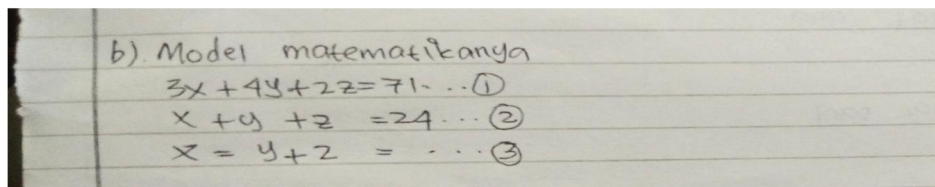 b). Model matematikanya
3x + 4y + 2z = 71. . . ①
x + y + z = 24 . . . ②
x = y + z = . . . ③